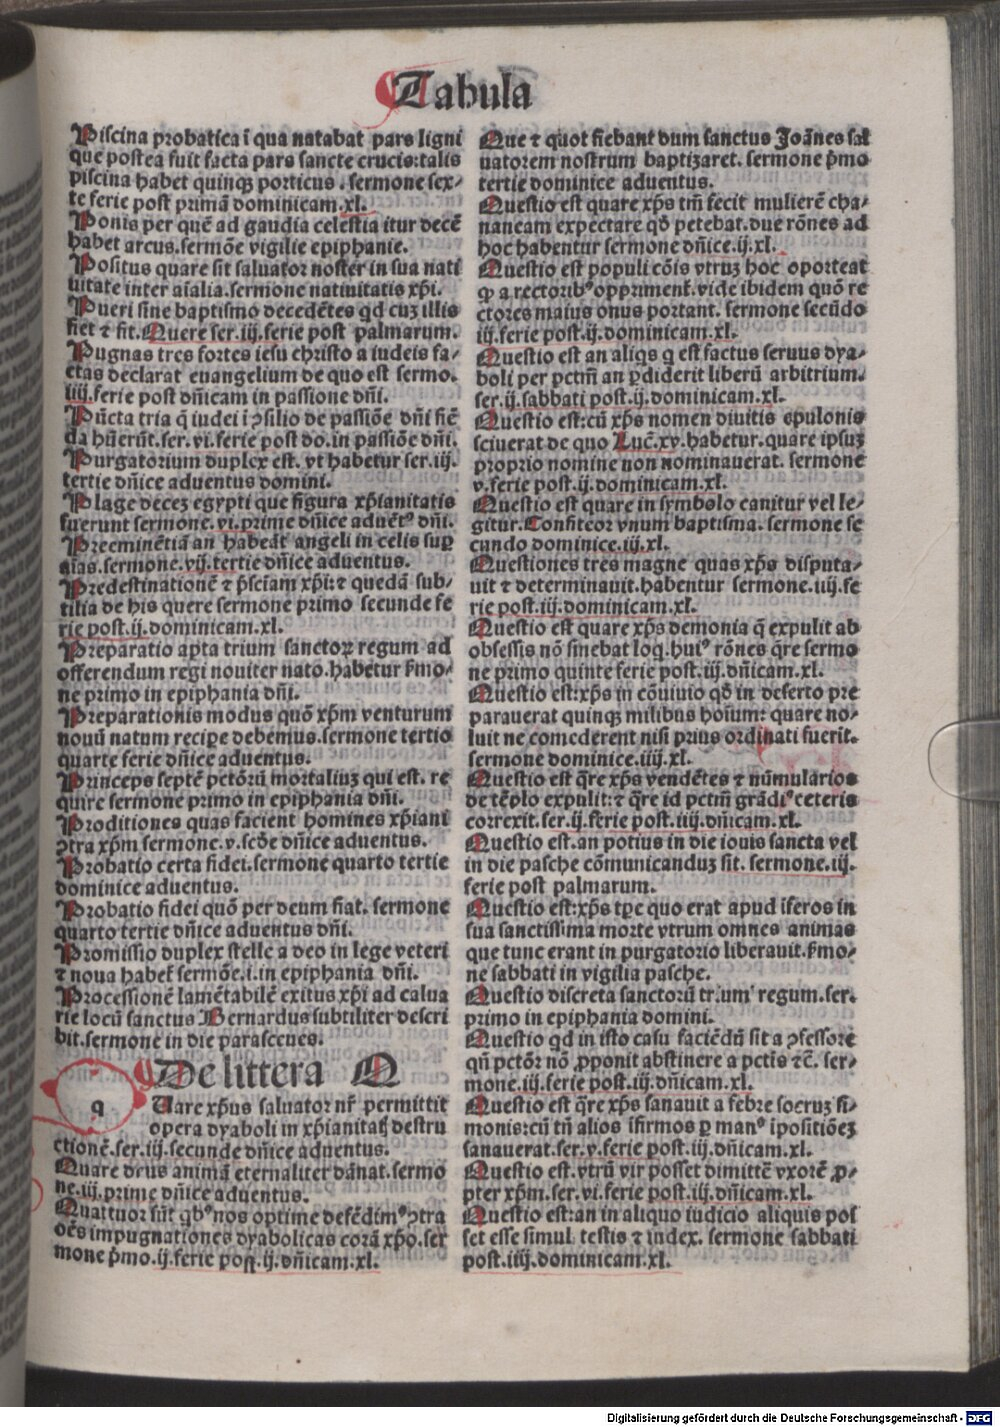 Tabula
Piscina probatica ī qua natabat pars ligni
que postea fuit facta pars sancte crucis: talis
piscina habet quinqȝ porticus. sermone sex-
te ferie post primā dominicam.xl.
Ponis per quē ad gaudia celestia itur decē
habet arcus.sermōe vigilie epiphanie.
Positus quare sit saluator noster in sua nati
uitate inter aīalia.sermone natiuitatis xp̄i.
Pueri sine baptismo decedētes qd cuȝ illis
fiet ⁊ fit.Quere ser.iij.ferie post palmarum.
Pugnas tres fortes iesu christo a iudeis fa-
ctas declarat euangelium de quo est sermo.
iiij.ferie post dn̄icam in passione dn̄i.
Pūcta tria q̄ iudei ī ꝯsilio de passiōe dn̄i fiē
da hūerūt.ser.vi.ferie post do.in passiōe dn̄i.
Purgatorium duplex est. vt habetur ser.iij.
tertie dn̄ice aduentus domini.
Plage deceȝ egypti que figura xp̄ianitatis
fuerunt sermone.vi.prime dn̄ice aduētꝰ dn̄i.
Preeminētiā an habeāt angeli in celis sup̄
aīas.sermone.vij.tertie dn̄ice aduentus.
Predestinationē ⁊ p̄sciam xp̄i:⁊ quedā sub-
tilia de his quere sermone primo secunde fe
rie post.ij.dominicam.xl.
Preparatio apta trium sanctoꝝ regum ad
offerendum regi nouiter nato.habetur p̄mo-
ne primo in epiphania dn̄i.
Preparationis modus quō xp̄m venturum
nouū natum recipe debemus.sermone tertio
quarte ferie dn̄ice aduentus.
Princeps septē pctōrū mortaliuȝ qui est. re
quire sermone primo in epiphania dn̄i.
Proditiones quas facient homines xp̄iani
ꝯtra xp̄m sermone.v.scd̄e dn̄ice aduentus.
Probatio certa fidei.sermone quarto tertie
dominice aduentus.
Probatio fidei quō per deum fiat. sermone
quarto tertie dn̄ice aduentus dn̄i.
Promissio duplex stelle a deo in lege veteri
⁊ noua habet̄ sermōe.i.in epiphania dn̄i.
Processionē lamētabilē exitus xp̄i ad calua
rie locū sanctus Bernardus subtiliter descri
bit.sermone in die parasceues.
De littera Q
q Uare xp̄us saluator nr̄ permittit
opera dyaboli in xp̄ianitatȝ destru
ctionē.ser.iij.secunde dn̄ice aduentus.
Quare deus animā eternaliter dānat.sermo
ne.iij.prime dn̄ice aduentus.
Quattuor sūt qbꝰ nos optime defēdimꝰ ꝯtra
oēs impugnationes dyabolicas corā xp̄o.ser
mone p̄mo.ij.ferie post.ij.dn̄icam.xl.
Que ⁊ quot fiebant dum sanctus Joānes sal
uatorem nostrum baptiȝaret. sermone p̄mo
tertie dominice aduentus.
Questio est quare xp̄s tm̄ fecit mulierē cha-
naneam expectare qd̄ petebat.due rōnes ad
hoc habentur sermone dn̄ice.ij.xl.
Questio est populi cōis vtruȝ hoc oporteat
ꝙ a rectoribꝰ oppriment̄.vide ibidem quō re
ctores maius onus portant. sermone secūdo
iij.ferie post.ij.dominicam.xl.
Questio est an aliqs q est factus seruus dya-
boli per pctm̄ an ꝑdiderit liberū arbitrium.
ser.ij.sabbati post.ij.dominicam.xl.
Questio est:cū xp̄s nomen diuitis epulonis
sciuerat de quo Luc̄.xv.habetur.quare ipsuȝ
proprio nomine non nominauerat. sermone
v.ferie post.ij.dominicam.xl.
Questio est quare in symbolo canitur vel le-
gitur.Confiteor vnum baptisma. sermone se
cundo dominice.iij.xl.
Questiones tres magne quas xp̄s disputa-
uit ⁊ determinauit.habentur sermone.iij.fe
rie post.iij.dominicam.xl.
Questio est quare xp̄s demonia q̄ expulit ab
obsessis nō sinebat loq.huiꝰ rōnes q̄re sermo
ne primo quinte ferie post.iij.dn̄icam.xl.
Questio est:xp̄s in cōuiuio qd̄ in deserto pre
parauerat quinqȝ milibus hoīum: quare no-
luit ne comederent nisi prius ordinati fuerit.
sermone dominice.iiij.xl.
Questio est q̄re xp̄s vendētes ⁊ nūmularios
de tēplo expulit:⁊ q̄re id pctm̄ grādiꝰ ceteris
correxit.ser.ij.ferie post.iiij.dn̄icam.xl.
Questio est.an potius in die iouis sancta vel
in die pasche cōmunicanduȝ sit. sermone.iij.
ferie post palmarum.
Questio est:xp̄s tp̄e quo erat apud īferos in
sua sanctissima morte vtrum omnes animas
que tunc erant in purgatorio liberauit.p̄mo-
ne sabbati in vigilia pasche.
Questio discreta sanctorū trium regum.ser.
primo in epiphania domini.
Questio qd in isto casu faciēdū sit a ꝯfessore
qn̄ pctōr nō ꝓponit abstinere a pctīs ⁊c̄. ser-
mone.iij.ferie post.iij.dn̄icam.xl.
Questio est q̄re xp̄s sanauit a febre socruȝ si-
monis:cū tn̄ alios īfirmos ꝑ manꝰ īpositiōeȝ
sanauerat.ser.v.ferie post.iij.dn̄icam.xl.
Questio est.vtrū vir posset dimittē vxorē ꝓ-
pter xp̄m.ser.vi.ferie post.iij.dn̄icam.xl.
Questio est:an in aliquo iudicio aliquis pos
set esse simul testis ⁊ iudex. sermone sabbati
post.iiij.dominicam.xl.
Digitalisierung gefördert durch die Deutsche Forschungsgemeinschaft - DFG